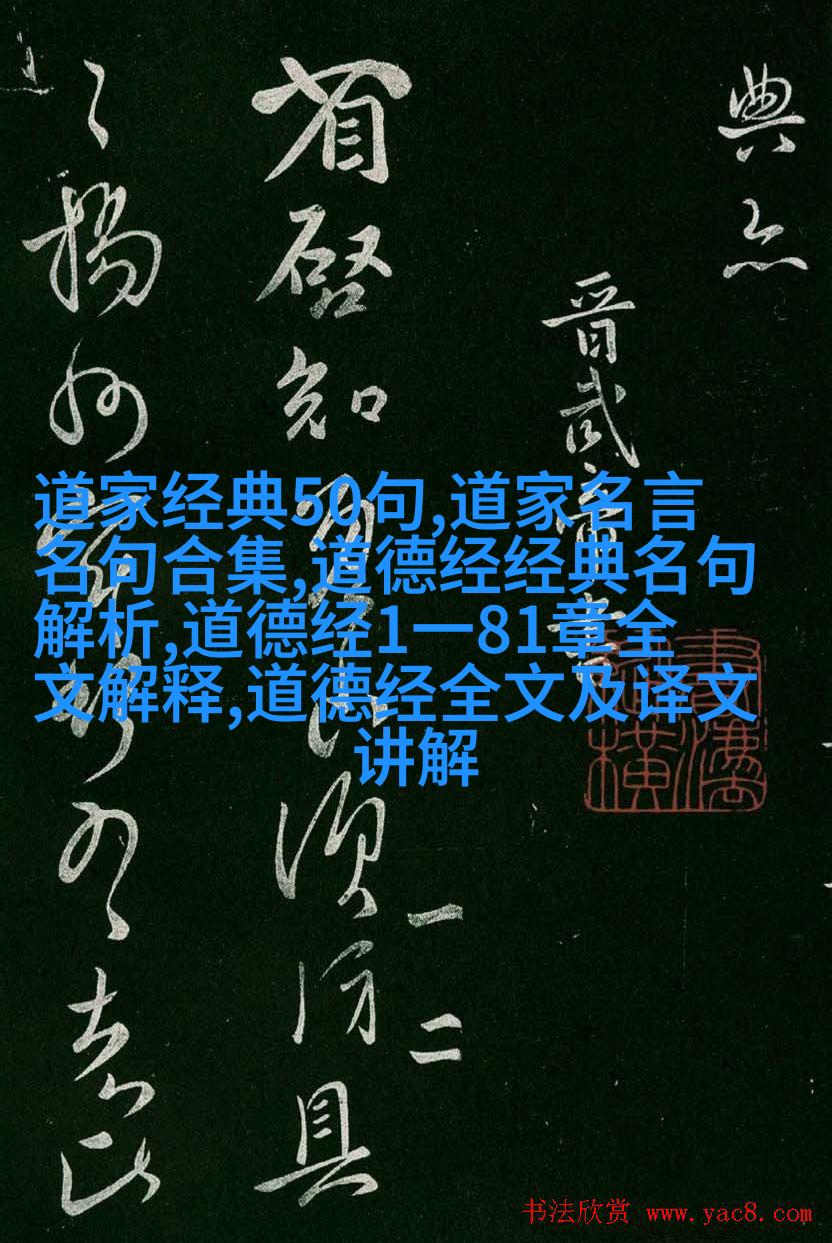 典亦
晉武帝書
一二
省啓知須防具
揚州
道家经典50句,道家名言
名句合集,道德经经典名句
解析,道德经1一81章全
文解释,道德经全文及译文
讲解
书法欣赏 www.yac8.com